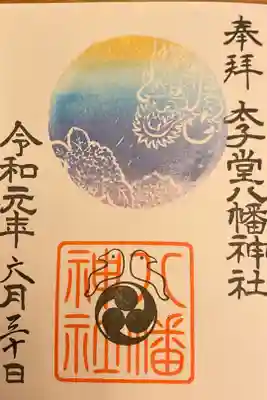 奉拝 太子堂八幡神社
八幡
神社
令和元年 六月三十日